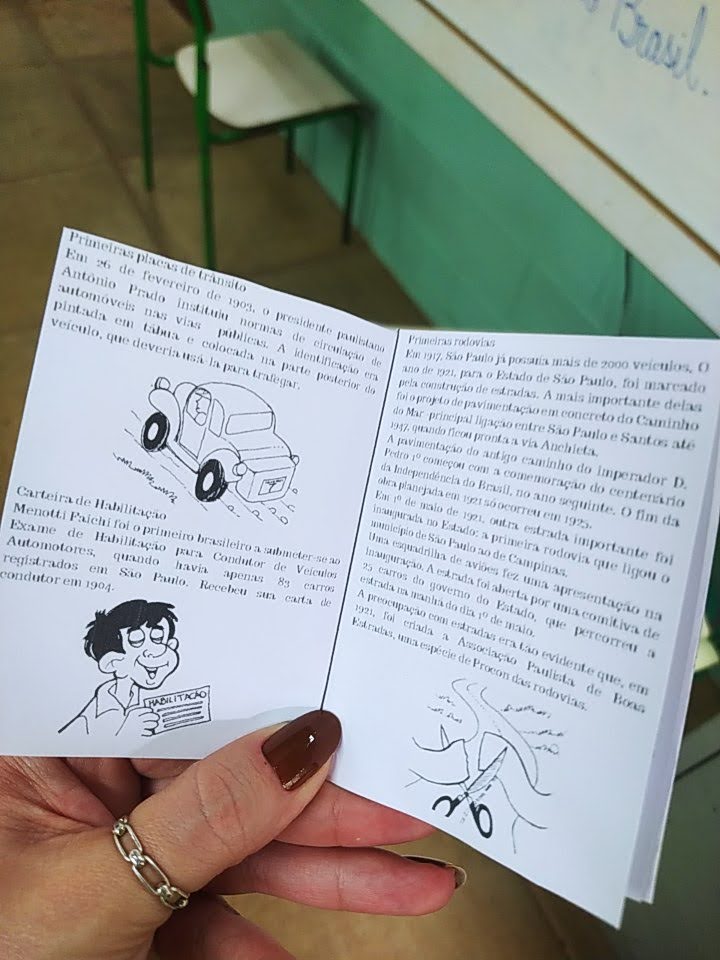 Brasil.
Primeiras placas de trânsito
Em 26 de fevereiro de 1903, o presidente paulistano
Antônio Prado instituiu normas de circulação de
automóveis nas vias públicas. A identificação era
pintada em tábua e colocada na parte posterior do
veículo, que deveria usá-la para trafegar.
Carteira de Habilitação
Menotti Faichi foi o primeiro brasileiro a submeter-se ao
Exame de Habilitação para Condutor de Veículos
Automotores, quando havia apenas 83 carros
registrados em São Paulo. Recebeu sua carta de
condutor em 1904.
HABILITAÇÃO
Primeiras rodovias
Em 1917, São Paulo já possuía mais de 2000 veículos. O
ano de 1921, para o Estado de São Paulo, foi marcado
pela construção de estradas. A mais importante delas
foi o projeto de pavimentação em concreto do Caminho
do Mar -principal ligação entre São Paulo e Santos até
1947, quando ficou pronta a via Anchieta.
A pavimentação do antigo caminho do imperador D.
Pedro 1º começou com a comemoração do centenário
da Independência do Brasil, no ano seguinte. O fim da
obra planejada em 1921 só ocorreu em 1925.
Em 1º de maio de 1921, outra estrada importante foi
inaugurada no Estado: a primeira rodovia que ligou o
município de São Paulo ao de Campinas.
Uma esquadrilha de aviões fez uma apresentação na
inauguração. A estrada foi aberta por uma comitiva de
25 carros do governo do Estado, que percorreu a
estrada na manhã do dia 1º de maio.
A preocupação com estradas era tão evidente que, em
1921, foi criada a Associação Paulista de Boas
Estradas, uma espécie de Procon das rodovias.